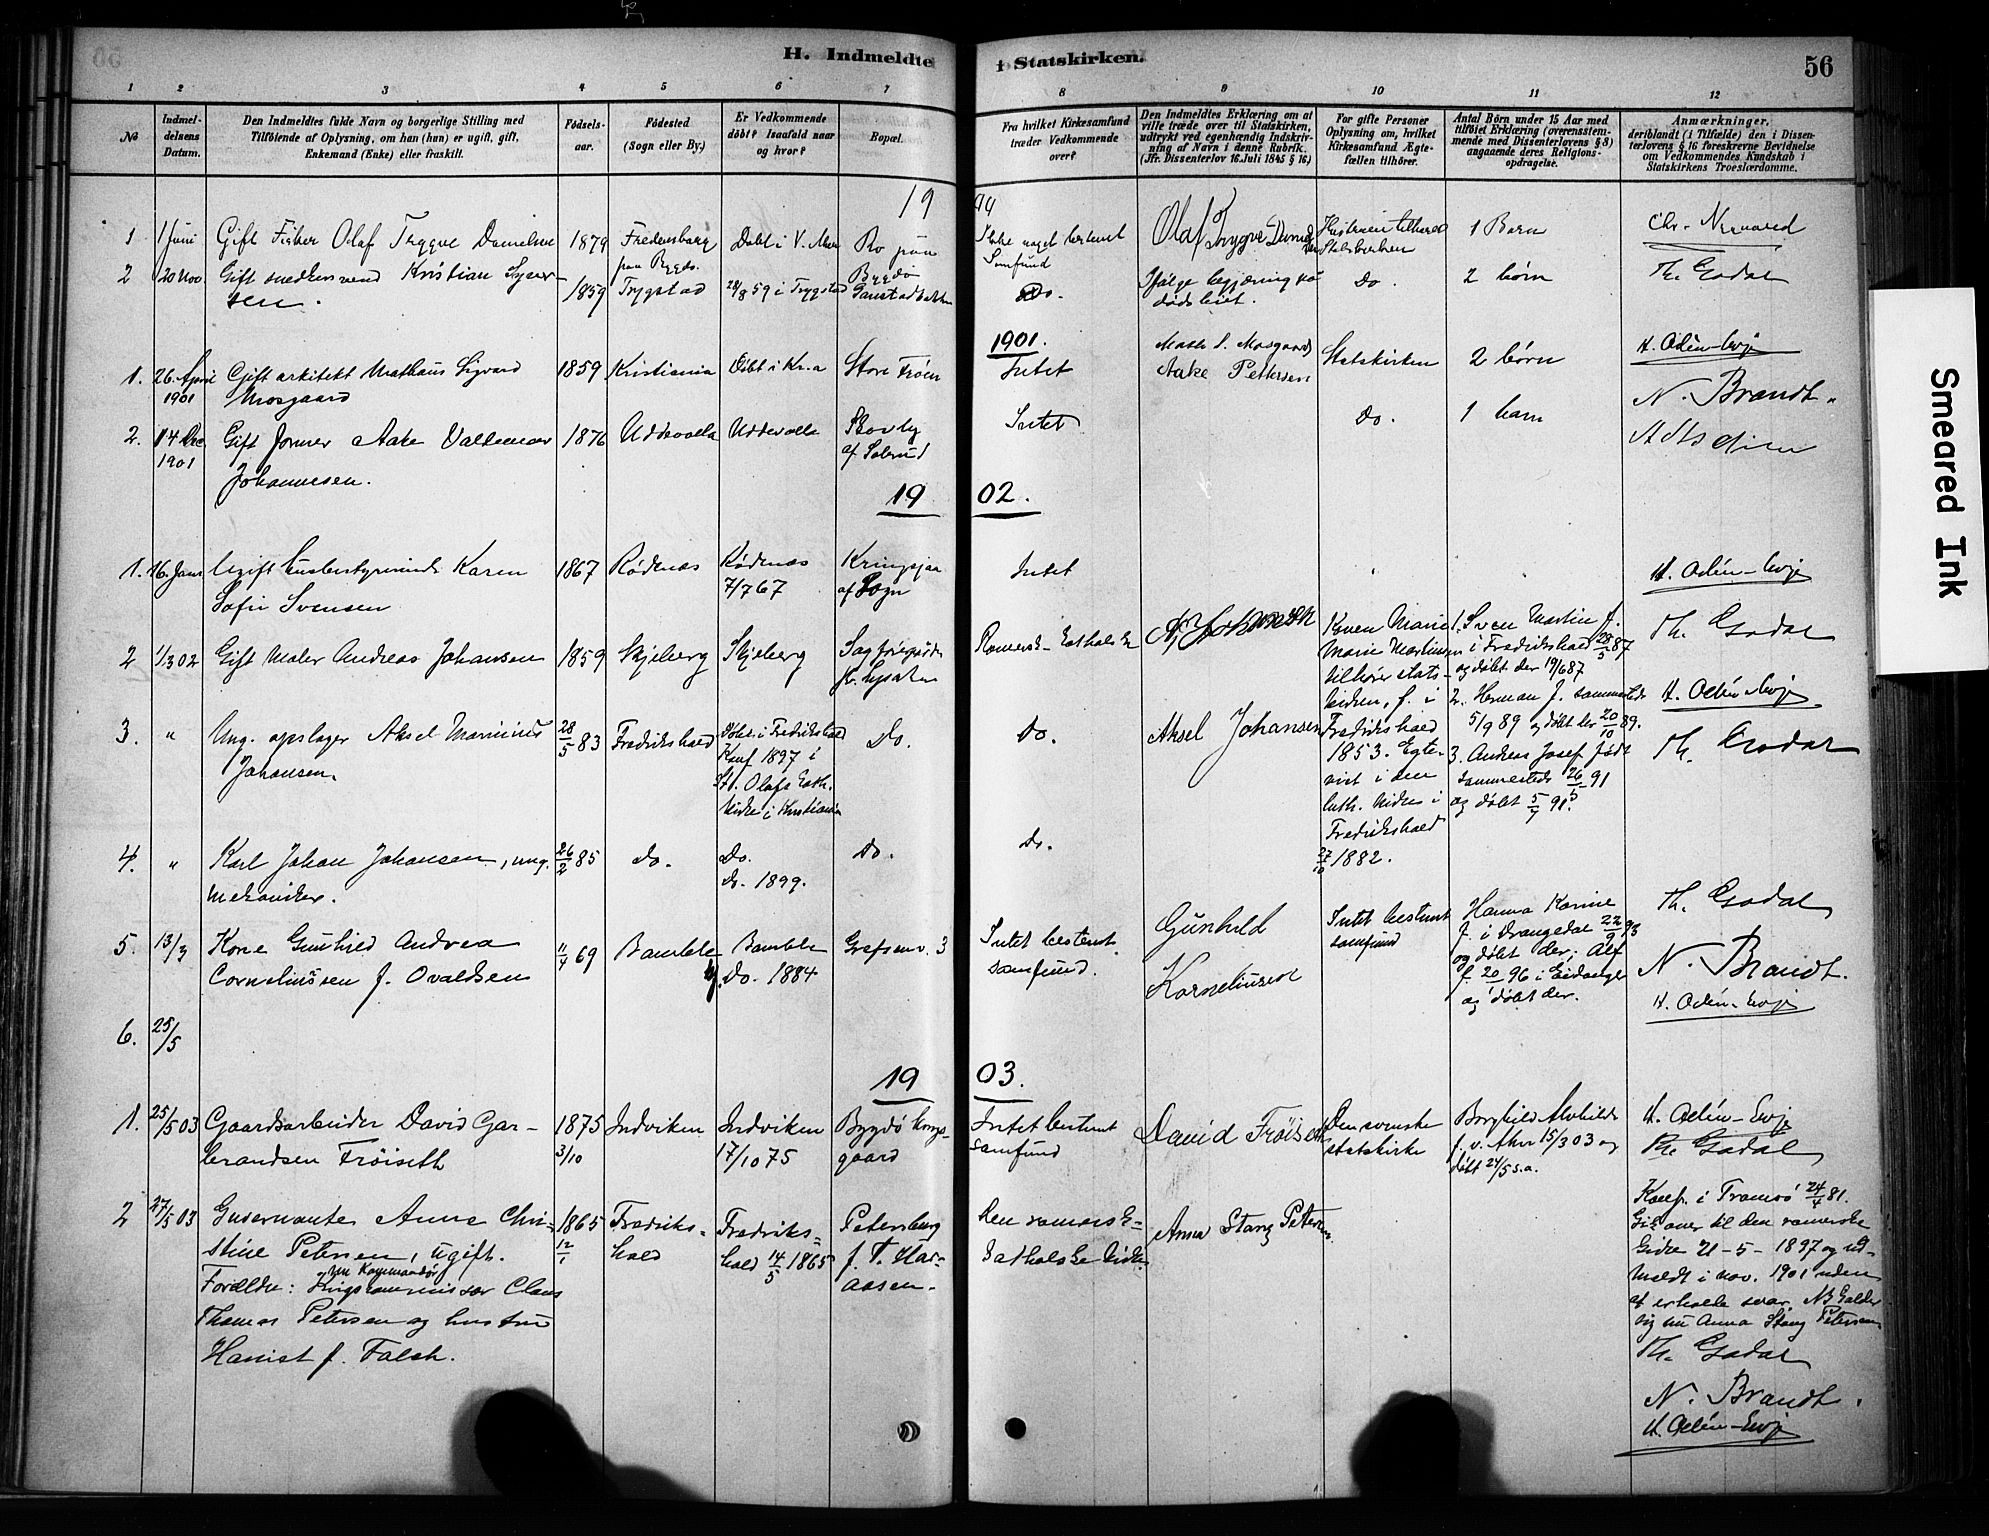 H. Indmeldte i Statskirken. 56
1 2 3 4 5 6 7 8 9 10 11 12
No
Indmel-
delsens
Datum.
Den Indmeldtes fulde Navn og borgerlige Stilling med
Tilføiende af Oplysning, om han (hun) er ugift, gift,
Enkemand (Enke) eller fraskilt.
Fødsels-
aar.
Fødested
(Sogn eller By.)
Er Vedkommende
døbt? Isaafald naar
og hvor?
Bopæl.
Fra hvilket Kirkesamfund
træder Vedkommende
over?
Den Indmeldtes Erklæring om at
ville træde over til Statskirken,
udtrykt ved egenhændig Indskriv-
ning af Navn i denne Rubrik.
(Jfr. Dissenterlov 16. Juli 1845 § 16)
For gifte Personer
Oplysning om, hvilket
Kirkesamfund Ægte-
fællen tilhører.
Antal Børn under 15 Aar med
tilføiet Erklæring (overensstem-
mende med Dissenterlovens § 8)
angaaende deres Religions-
opdragelse.
Anmærkninger,
deriblandt (i Tilfælde) den i Dissen-
terlovens § 16 foreskrevne Bevidnelse
om Vedkommendes Kundskab i
Statskirkens Troeslærdomme.
1
1 Juni
Gift Fisker Olaf Trygve Danielsen
1879
Fredensborg
paa Bygdø
Døbt i V. Aker
Ro paa
Bygdø
Ikke noget bestemt
Samfund
Olaf Trygve
Hustruen tilhører
Statskirken
1 Barn
2
20 Nov.
Gift snedkersvend Kristian
sen.
1859
Trygstad
28/8 59 i Trygstad
Gaustadbakken
Do.
Ifølge begjæring på
dødsleiet.
Do.
2 børn
Th. Godal
1901.
1.
26. April
1901
Gift arkitekt Mathæus Sigvard
Mosgaard
1859
Kristiania
Døbt i Kr.a
Store Frøen
Intet
Statskirken
2 børn
H. Odén-Evje
N. Brandt.
2.
14 Dec
1901
Gift former Aake Valdemar
Johannesen.
1876
Uddevalla
Uddevalla
Skovly
af Solerud
Intet
Aake Pettersen
Do.
1 barn
1902.
1.
16. Jan
Ugift husbestyrerinde Karen
Sofie Svensen
1867
Rødenæs
Rødenæs
7/7 67
Kringsjaa
af Sogn
Intet
H. Odén-Evje
2
1/3 02
Gift Maler Andreas Johansen
1859
Skjeberg
Skjeberg
Romersk-Katholske
A. Johansen
Karen Marie
Marie Martinsen
tilhører stats-
kirken, f. i
Fredrikshald
1853. Egte-
viet i den
luth. kirke i
Fredrikshald
27/10 1882.
1. Sven Martin f.
i Fredrikshald 28/5 87
og døbt der 19/6 87
2. Herman f. sammesteds
5/9 89 og døbt der 20/10 89.
3. Anders Josef født
sammesteds 26/5 91
og døbt 5/7 91.
Th. Godal
H. Odén-Evje
3.
"
Ung. opslager Aksel Marinius
Johansen.
28/5 83
Fredrikshald
Døbt i Fredrikshald
Konf 1897 i
St. Olafs Kath.
kirke i Kristiania
Do.
Do.
Aksel Johansen
Th. Godal
4.
"
Karl Johan Johansen, ung.
mekaniker.
26/2 85
Do.
Do.
Do. 1899.
Do.
Do.
Th. Godal
5.
13/3
Kone Gunhild Andrea
Corneliussen f. Ovaldsen
11/4 69
Bamble
Bamble
Do. 1884
Grefsenv. 3
Intet bestemt
samfund.
Gunhild
Korneliusen
Intet bestemt
samfund
Hanna Karine
f. i Drangedal 22/9 93
og døbt der, Alf
f. 20 96 i Eidanger
og døbt der.
N. Brandt.
H. Odén-Evje
6.
25/5
1903.
1.
25/5 03
Gaardsarbeider David Gar-
brandsen Frøiseth
1875
3/10
Indviken
Indviken
17/10 75
Bygdø Kongs-
gaard
Intet bestemt
samfund
David Frøiseth
Den svenske
statskirke
Borghild Alvhilde
f. v. Aker 15/3 03 og
døbt 24/5 s.a.
H. Odén-Evje
Th. Godal
2
27/5 03
Guvernante Anna Chri-
stine Petersen, ugift.
Forældre: Krigskommissær Claus
Thomas Petersen og hustru
Harriet f. Falch.
1865
12/1
Fredriks-
hald
Fredriks-
hald 14/5 1865
Petersborg
Den romersk-
katholske kirke
Anna Stang Petersen
Konf. i Tromsø 24/4 81.
Gik over til den romerske
kirke 21-5-1897 og ud-
meldt i nov. 1901 uden
at erholde svar. NB kalder
sig nu Anna Stang Petersen.
Th. Godal
N. Brandt.
H. Odén-Evje
Smeared Ink